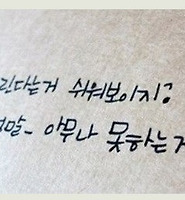 린다는거 쉬워보이지?
정말- 아무나 못하는거